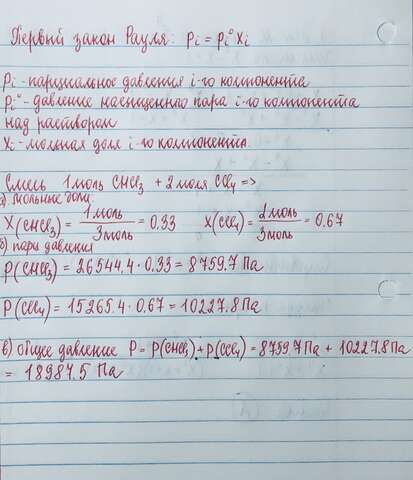 Первый закон Рауля: Pi = Pi° Xi
Pi - парциальное давления i-го компонента
Pi° - давление насыщенного пара i-го компонента
над раствором
Xi - мольная доля i-го компонента.
Смесь 1 моль CHCl3 + 2 моля CCl4 =>
а) мольные доли:
X(CHCl3) = 1 моль / 3 моль = 0.33 X(CCl4) = 2 моль / 3 моль = 0.67
б) пары давления
P(CHCl3) = 26544.4 · 0.33 = 8759.7 Па
P(CCl4) = 15265.4 · 0.67 = 10227.8 Па
в) общее давление P = P(CHCl3) + P(CCl4) = 8759.7 Па + 10227.8 Па
= 18987.5 Па